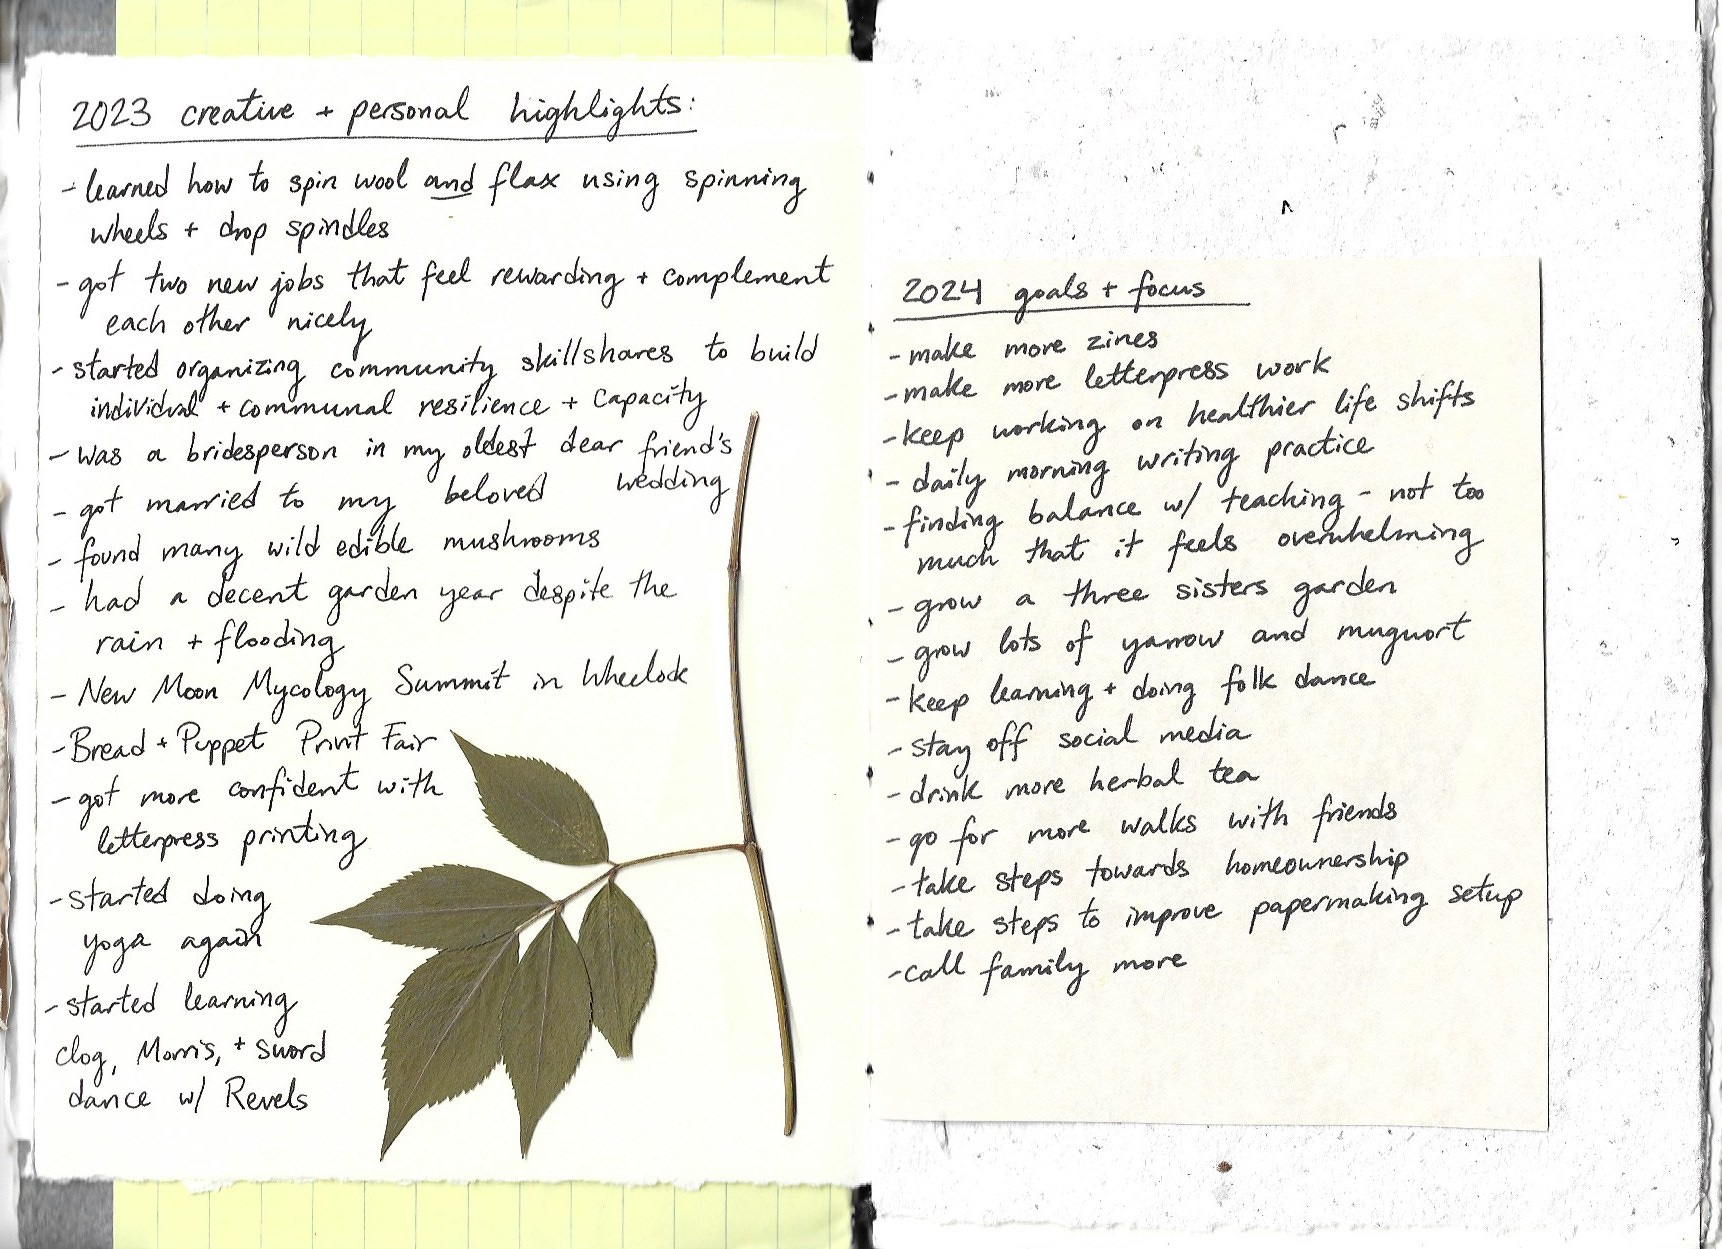 2023 creative + personal highlights:
- learned how to spin wool and flax using spinning
wheels + drop spindles
- got two new jobs that feel rewarding + complement
each other nicely
- started organizing community skillshares to build
individual + communal resilience + capacity
- was a bridesperson in my oldest dear friend's
wedding
- got married to my beloved
- found many wild edible mushrooms
- had a decent garden year despite the
rain + flooding
- New Moon Mycology Summit in Wheelock
- Bread + Puppet Print Fair
- got more confident with
letterpress printing
- started doing
yoga again
- started learning
clog, Morris, + sword
dance w/ Revels
2024 goals + focus
- make more zines
- make more letterpress work
- keep working on healthier life shifts
- daily morning writing practice
- finding balance w/ teaching - not too
much that it feels overwhelming
- grow a three sisters garden
- grow lots of yarrow and mugwort
- keep learning + doing folk dance
- stay off social media
- drink more herbal tea
- go for more walks with friends
- take steps towards homeownership
- take steps to improve papermaking setup
- call family more